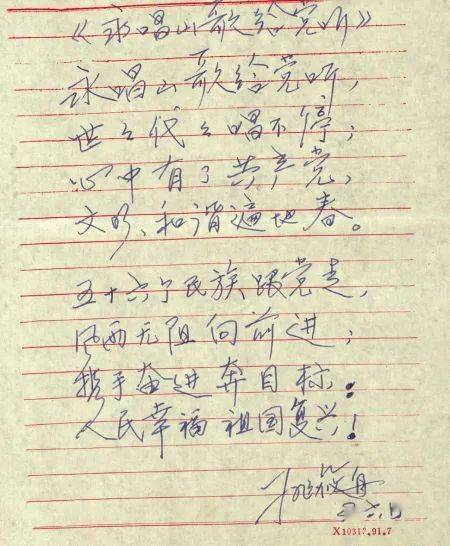 《永唱山歌给党听》
永唱山歌给党听，
世々代々唱不停；
心中有了共产党，
文明、和谐遍地春。
五十六个民族跟党走，
风雨无阻向前进；
携手奋进奔目标：
人民幸福祖国复兴！
X10312.91.7